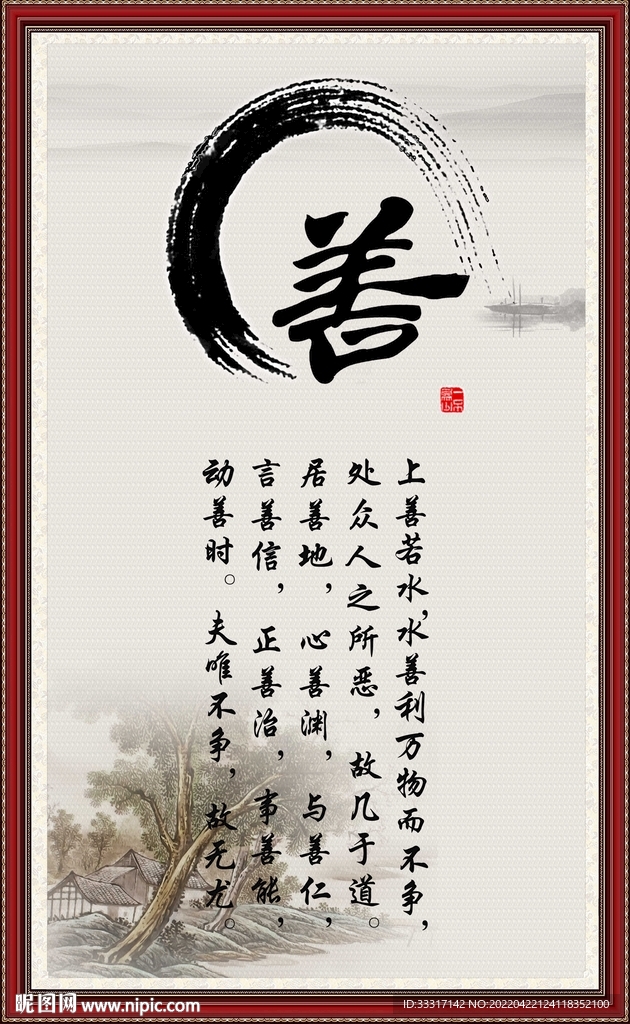 善
上善若水，水善利万物而不争，
处众人之所恶，故几于道。
居善地，心善渊，与善仁，
言善信，正善治，事善能，
动善时。夫唯不争，故无尤。
昵图网 www.nipic.com
ID:33317142 NO:20220422124118352100